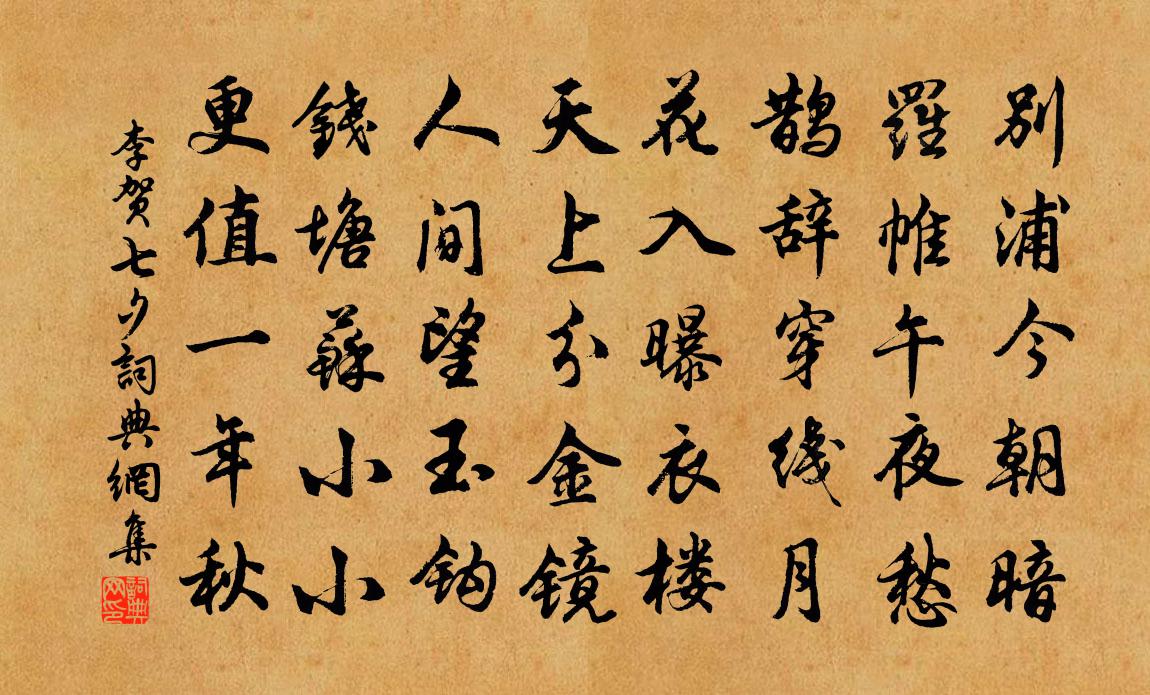 別浦今朝暗
羅帷午夜愁
鹊辞穿线月
花入曝衣楼
天上分金镜
人间望玉钩
錢塘蘇小小
更值一年秋
李贺七夕詞典網集
詞典网印